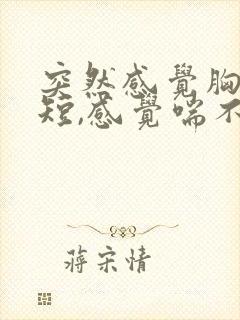 突然感覺胸
短,感覺喘不
蔣宋情